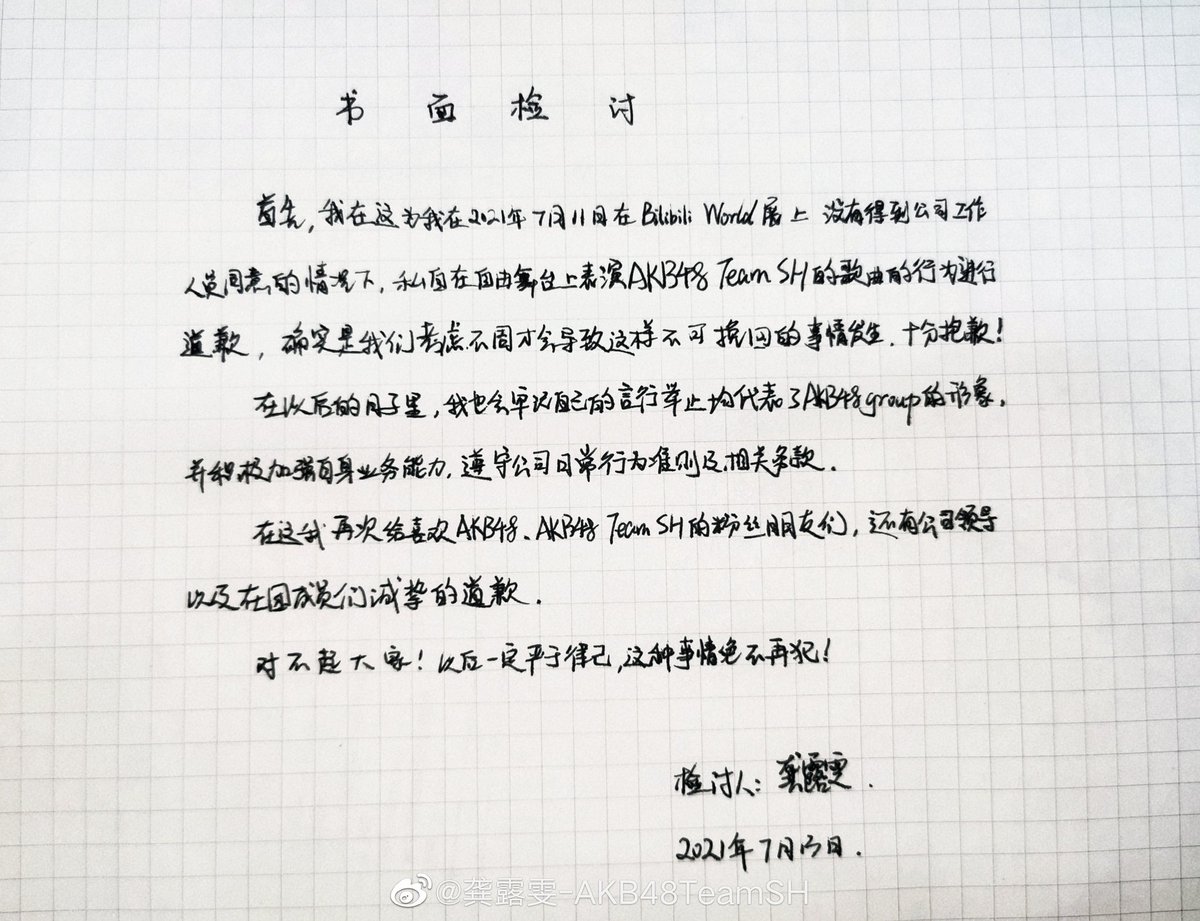 书面检讨
首先,我在这为我在2021年7月11日在Bilibili World展上 没有得到公司工作
人员同意的情况下,私自在自由舞台上表演AKB48 Team SH的歌曲的行为进行
道歉,确实是我们考虑不周才会导致这样不可挽回的事情发生.十分抱歉!
在以后的日子里,我也会牢记自己的言行举止均代表了AKB48group的形象,
并积极加强自身业务能力,遵守公司日常行为准则及相关条款.
在这我再次给喜欢AKB48、AKB48 Team SH的粉丝朋友们,还有公司领导
以及在团成员们诚挚的道歉.
对不起大家!以后一定严于律己,这种事情绝不再犯!
检讨人:龚露雯.
2021年7月13日.
@龚露雯-AKB48TeamSH